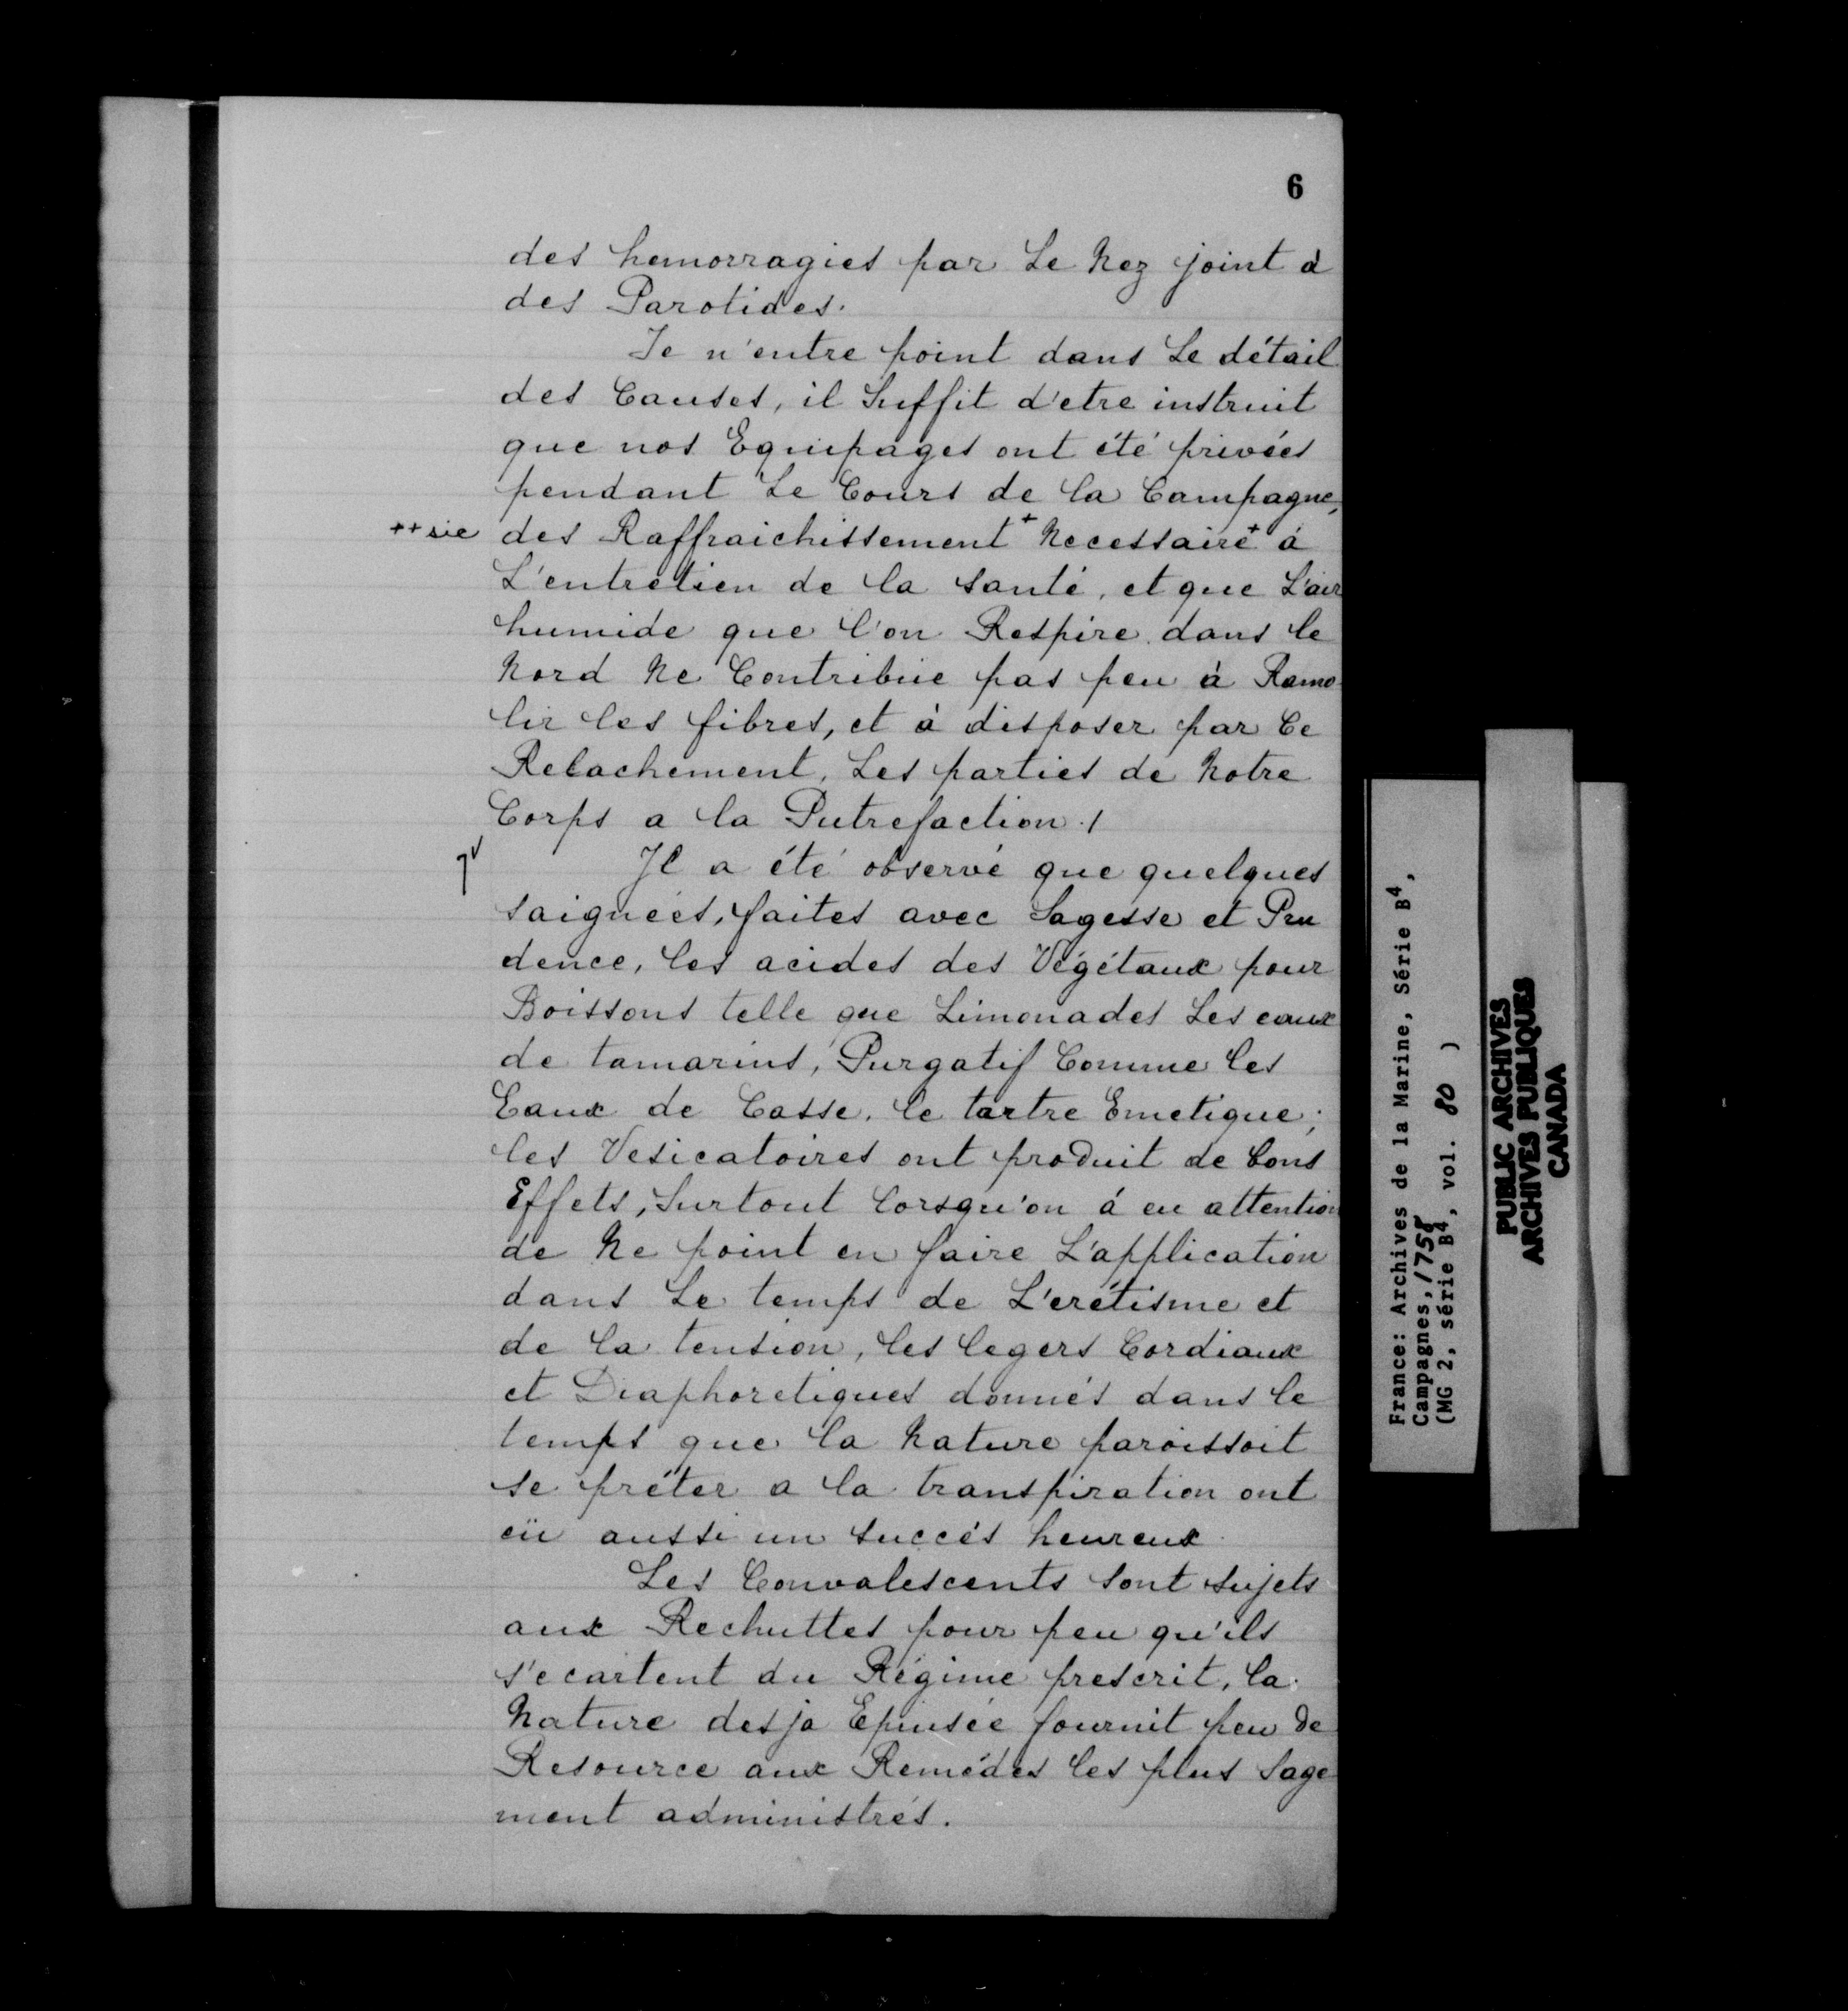 6
des hemorragies par Le Nez joint à
des Parotides.
Je n'entre point dans Le détail
des Causes, il Suffit d'etre instruit
que nos Equipages ont été privées
pendant Le Cours de la Campagne,
++ sic des Raffraichissement + Necessaire + à
L'entretien de la santé, et que L'air
humide que l'on Respire dans le
Nord Ne Contribüe pas peu à Ramo
lir les fibres, et à disposer par Ce
Relachement, Les parties de Notre
Corps a la Putrefaction ./
Jl a été observé que quelques
saignées, faites avec Sagesse et Pru
dence, les acides des Végétaux pour
Boissons telle que Limonades Les eaux
de tamarins, Purgatif Comme les
Eaux de Casse, le tartre Emetique;
les Vesicatoires ont produit de bons
Effets, Surtout lorsqu'on á eu attention
de Ne point en faire L'application
dans Le temps de L'erétisme et
de la tension, les legers Cordiaux
et Diaphoretiques donnés dans le
temps que la Nature paroissoit
se préter a la transpiration ont
eü aussi un succés heureux.
Les Convalescents sont sujets
aux Rechuttes pour peu qu'ils
s'ecartent du Régime prescrit, la
Nature desja Epuisée fournit peu de
Resource aux Remédes les plus Sage
ment administrés.
France: Archives de la Marine, Série B4,
Campagnes, 1758
(MG 2, série B4, vol. 80 )
PUBLIC ARCHIVES
ARCHIVES PUBLIQUES
CANADA